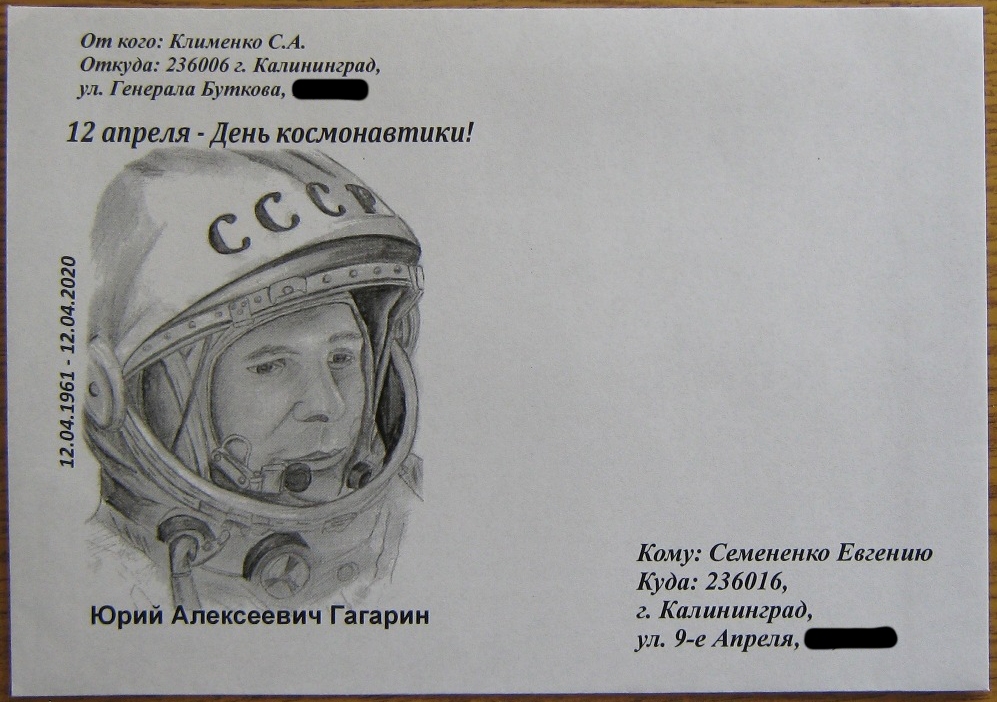 От кого: Клименко С.А.
Откуда: 236006 г. Калининград,
ул. Генерала Буткова,
12 апреля - День космонавтики!
СССР
12.04.1961 - 12.04.2020
Юрий Алексеевич Гагарин
Кому: Семененко Евгению
Куда: 236016,
г. Калининград,
ул. 9-е Апреля,